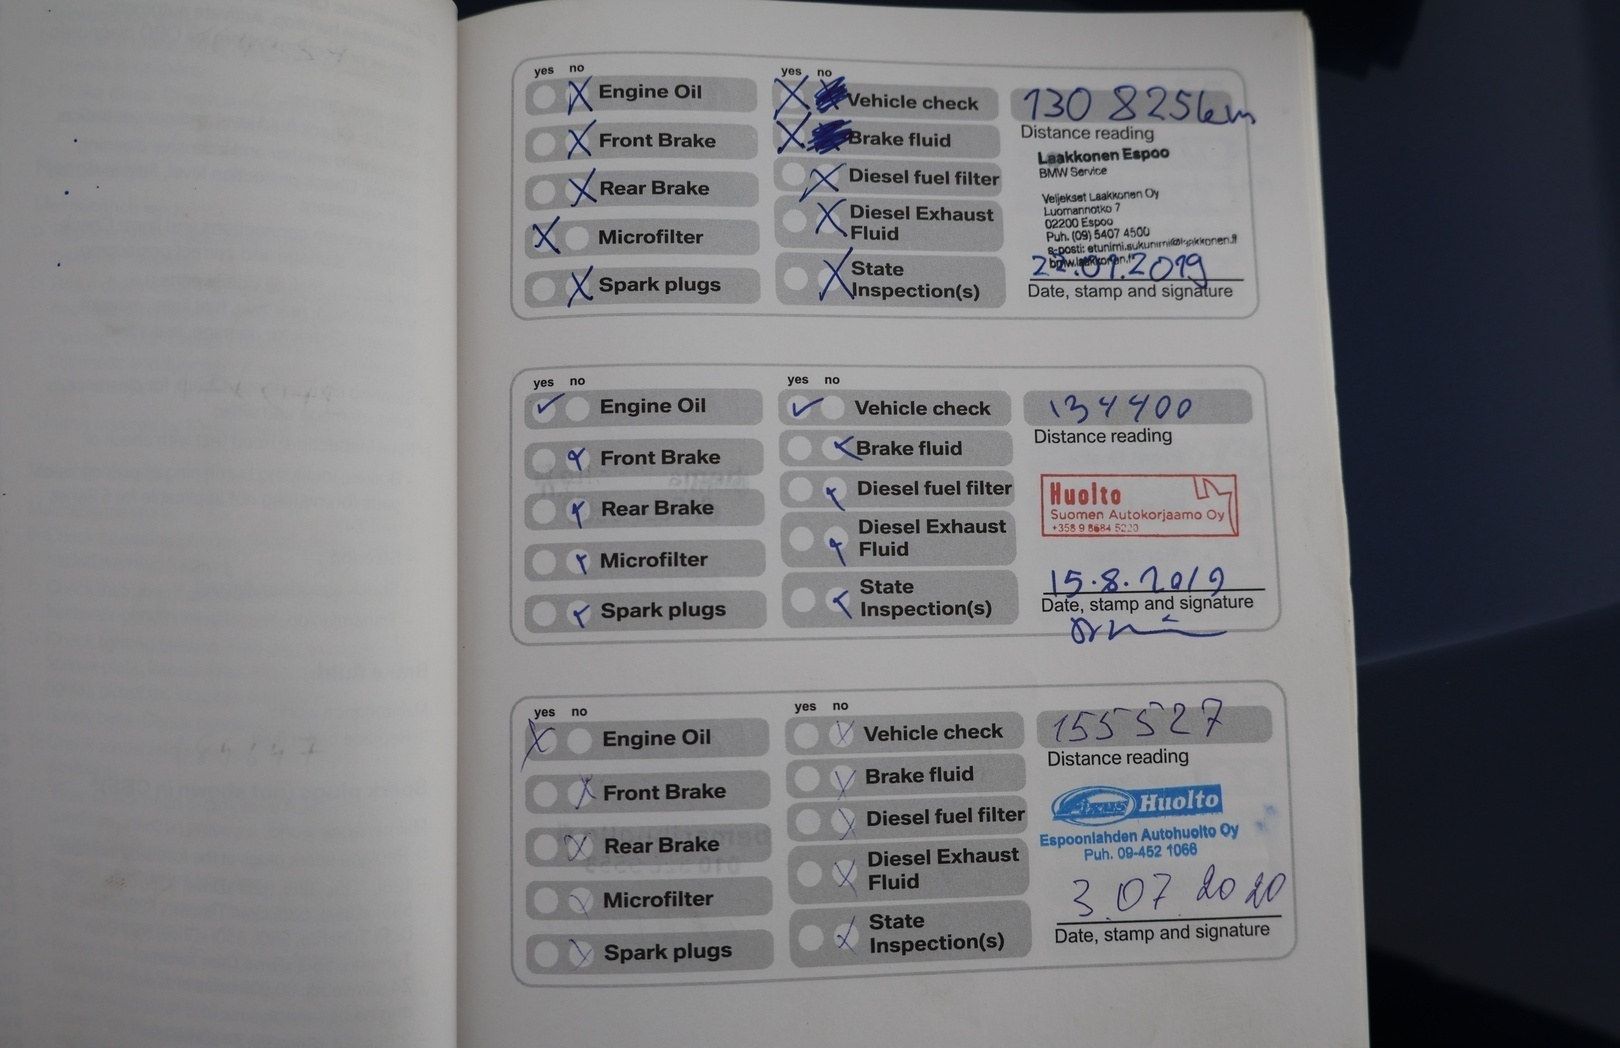 yes no
Engine Oil
Front Brake
Rear Brake
Microfilter
Spark plugs
yes no
Vehicle check
Brake fluid
Diesel fuel filter
Diesel Exhaust
Fluid
State
Inspection(s)
130 825km
Distance reading
Laakkonen Espoo
BMW Service
Veljekset Laakkonen Oy
Luomannotko 7
02200 Espoo
Puh. (09) 5407 4500
s-posti: etunimi.sukunimi@laakkonen.fi
bmw.laakkonen.fi
.01.2019
Date, stamp and signature
yes no
Engine Oil
Front Brake
Rear Brake
Microfilter
Spark plugs
yes no
Vehicle check
Brake fluid
Diesel fuel filter
Diesel Exhaust
Fluid
State
Inspection(s)
134400
Distance reading
Huolto
Suomen Autokorjaamo Oy
+358 9 8684 5220
15.8.2019
Date, stamp and signature
yes no
Engine Oil
Front Brake
Rear Brake
Microfilter
Spark plugs
yes no
Vehicle check
Brake fluid
Diesel fuel filter
Diesel Exhaust
Fluid
State
Inspection(s)
155527
Distance reading
Fixus Huolto
Espoonlahden Autohuolto Oy
Puh. 09-452 1066
3.07.2020
Date, stamp and signature